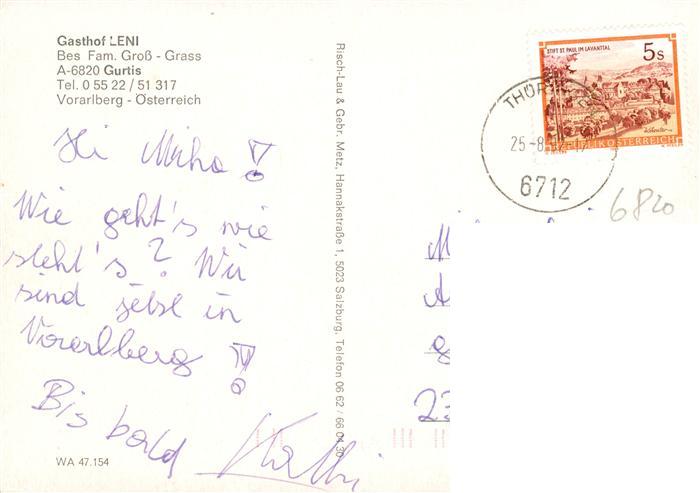 Gasthof LENI
Bes Fam. Groß - Grass
A-6820 Gurtis
Tel. 0 55 22 / 51 317
Vorarlberg - Österreich
Hi Micha!
Wie geht's wie
steht's? Wir
sind jetzt in
Vorarlberg!
Bis bald
WA 47.154
Risch-Lau & Gebr. Metz, Hannakstraße 1, 5023 Salzburg, Telefon 06 62 / 66 04 30
STIFT ST. PAUL IM LAVANTTAL
5s
REPUBLIK ÖSTERREICH
THÜR
25-8
6712
6820
M
A
g
23